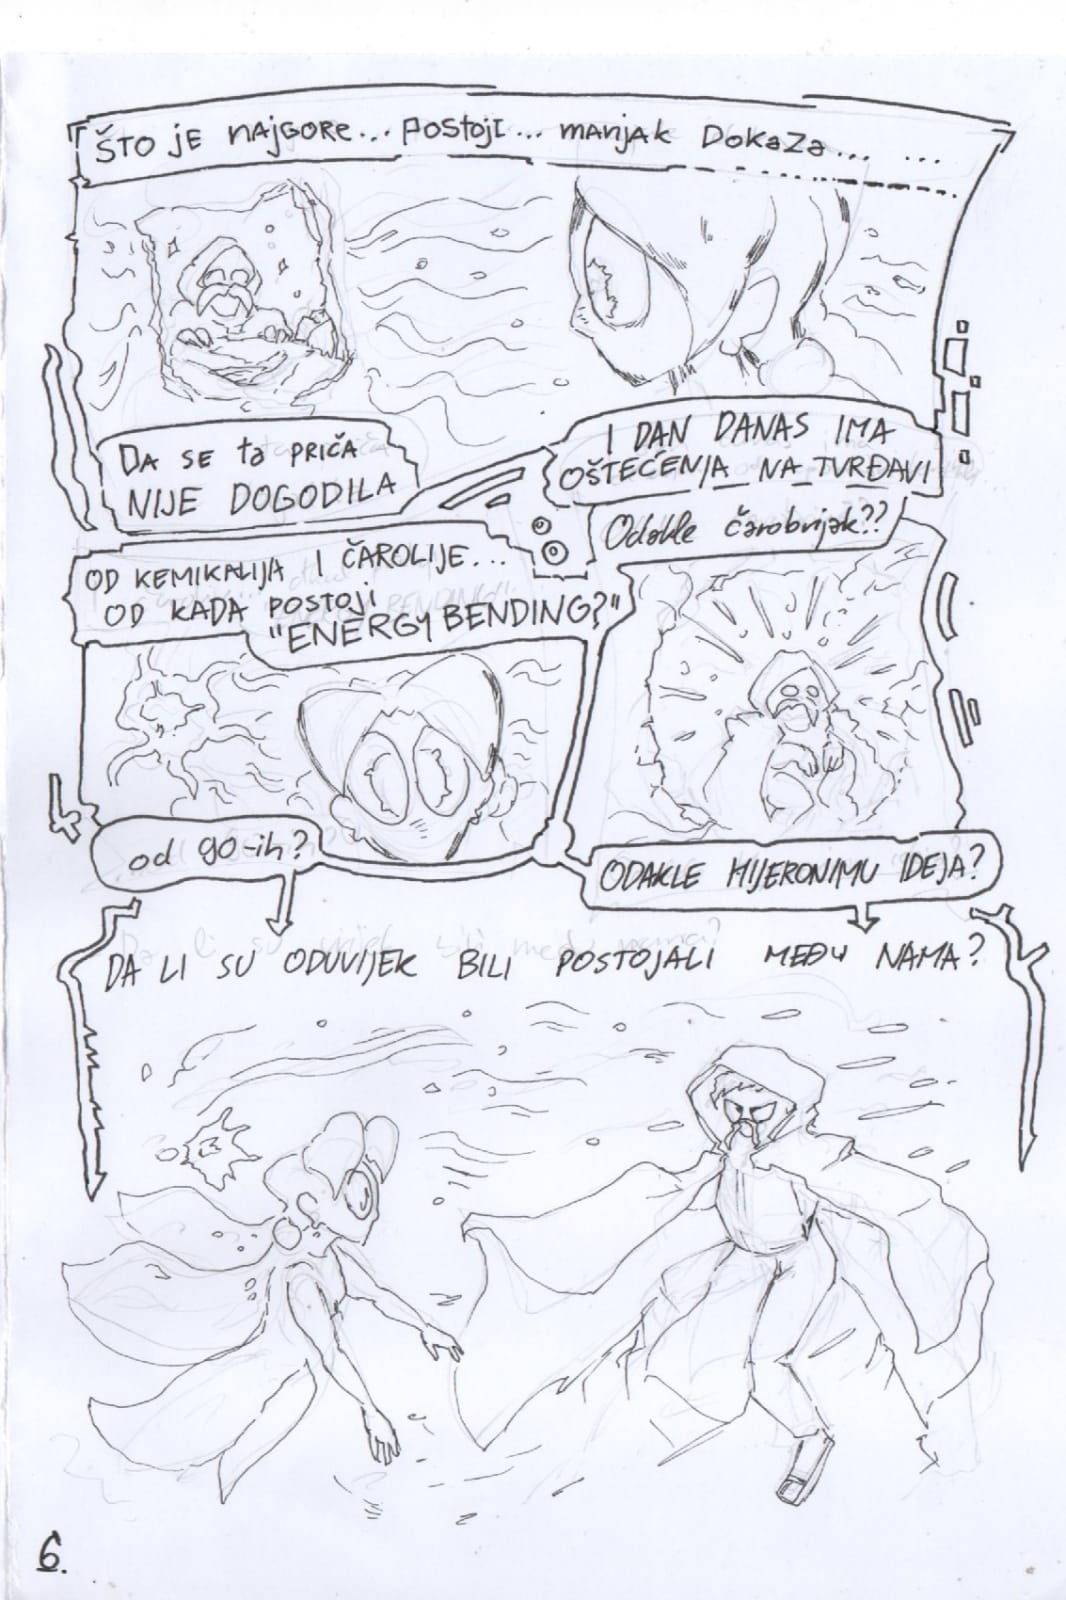 ŠTO JE NAJGORE... POSTOJI... MANJAK DOKAZA... ...
DA SE ta PRIČA
NIJE DOGODILA
I DAN DANAS IMA
OŠTEĆENJA NA TVRĐAVI
Odakle čarobnjak??
OD KEMIKALIJA I ČAROLIJE...
OD KADA POSTOJI
"ENERGY BENDING?"
od go-ih?
ODAKLE HIJERONIMU IDEJA?
DA LI SU ODUVIJEK BILI POSTOJALI MEĐU NAMA?
6.